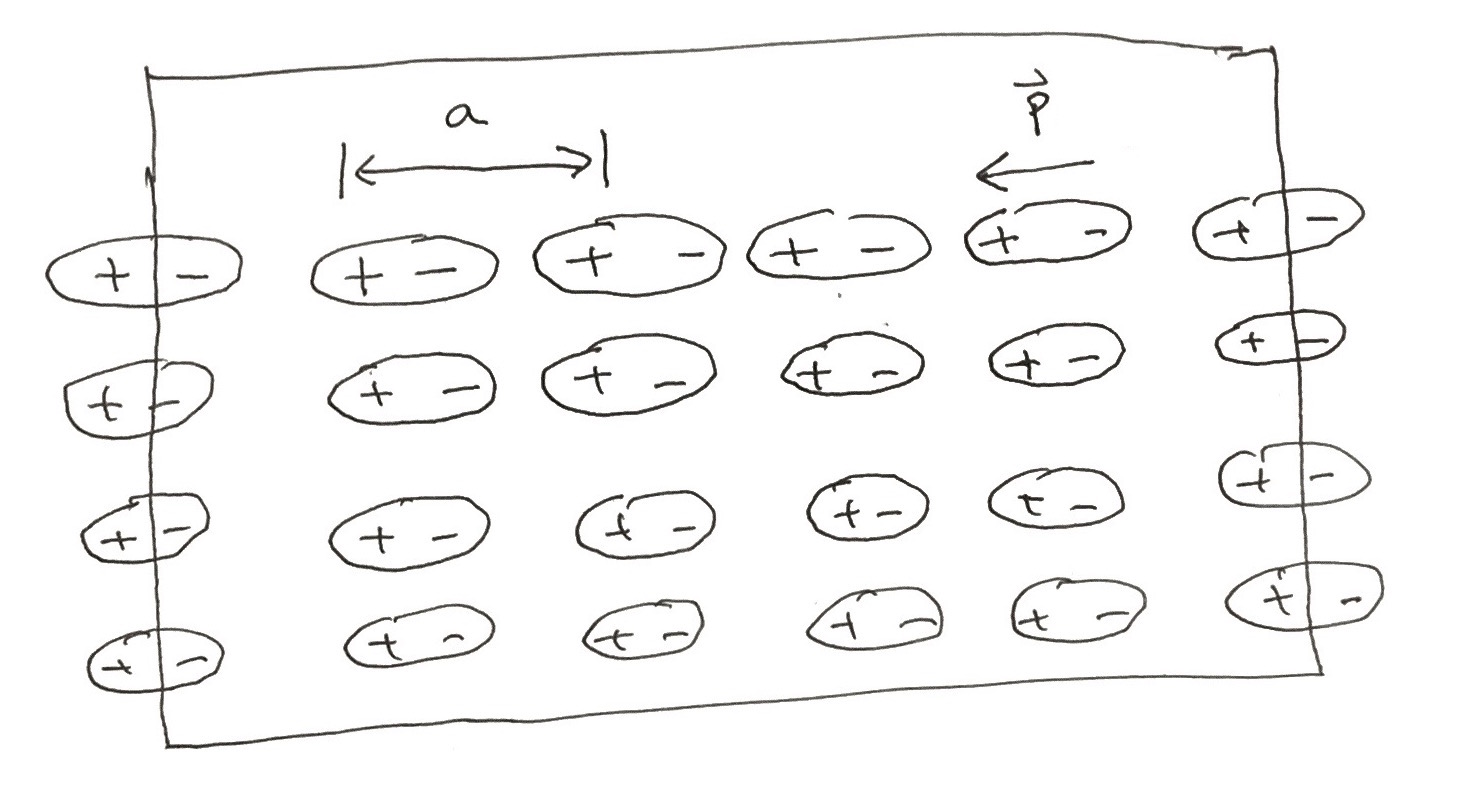 a
p⃗
+ - + - + - + - + - + -
+ - + - + - + - + - + -
+ - + - + - + - + - + -
+ - + - + - + - + - + -